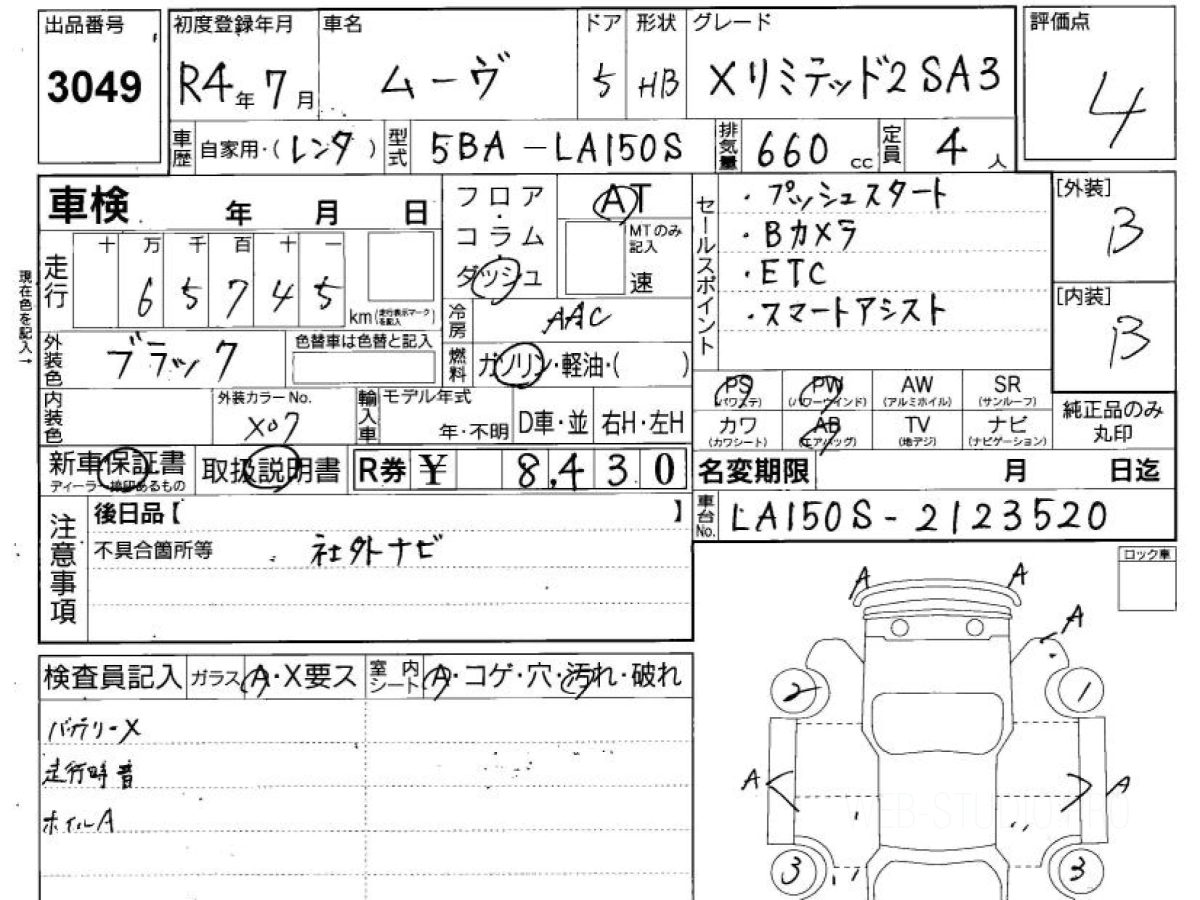 出品番号
3049
初度登録年月
R4年7月
車名
ムーヴ
ドア
5
形状
HB
グレード
Xリミテッド2 SA3
評価点
4
車歴 自家用・(レンタ)
型式 5BA-LA150S
排気量 660cc
定員 4人
車検 年 月 日
現在色を記入→
走行
十 万 千 百 十 一
6 5 7 4 5
km(走行表示マークを記入)
フロア・コラム・ダッシュ
AT
MTのみ記入
速
冷房 AAC
燃料 ガソリン・軽油・( )
セールスポイント
・プッシュスタート
・Bカメラ
・ETC
・スマートアシスト
[外装]
B
[内装]
B
外装色 ブラック
色替車は色替と記入
内装色
外装カラーNo.
X07
輸入車
モデル年式
年・不明
D車・並
右H・左H
PS (パワステ)
PW (パワーウインド)
AW (アルミホイル)
SR (サンルーフ)
カワ (カワシート)
AB (エアバッグ)
TV (地デジ)
ナビ (ナビゲーション)
純正品のみ
丸印
新車保証書
ディーラー捺印あるもの
取扱説明書
R券 ¥ 8,430
名変期限 月 日迄
車台No. LA150S-2123520
注意事項
後日品【 】
不具合箇所等
社外ナビ
ロック車
検査員記入
ガラス A・X要ス
室内シート A・コゲ・穴・汚れ・破れ
バッテリーX
走行時音
ホイルA
A A
A
2 1
A A
3 3
WEB-STUDIO.PRO